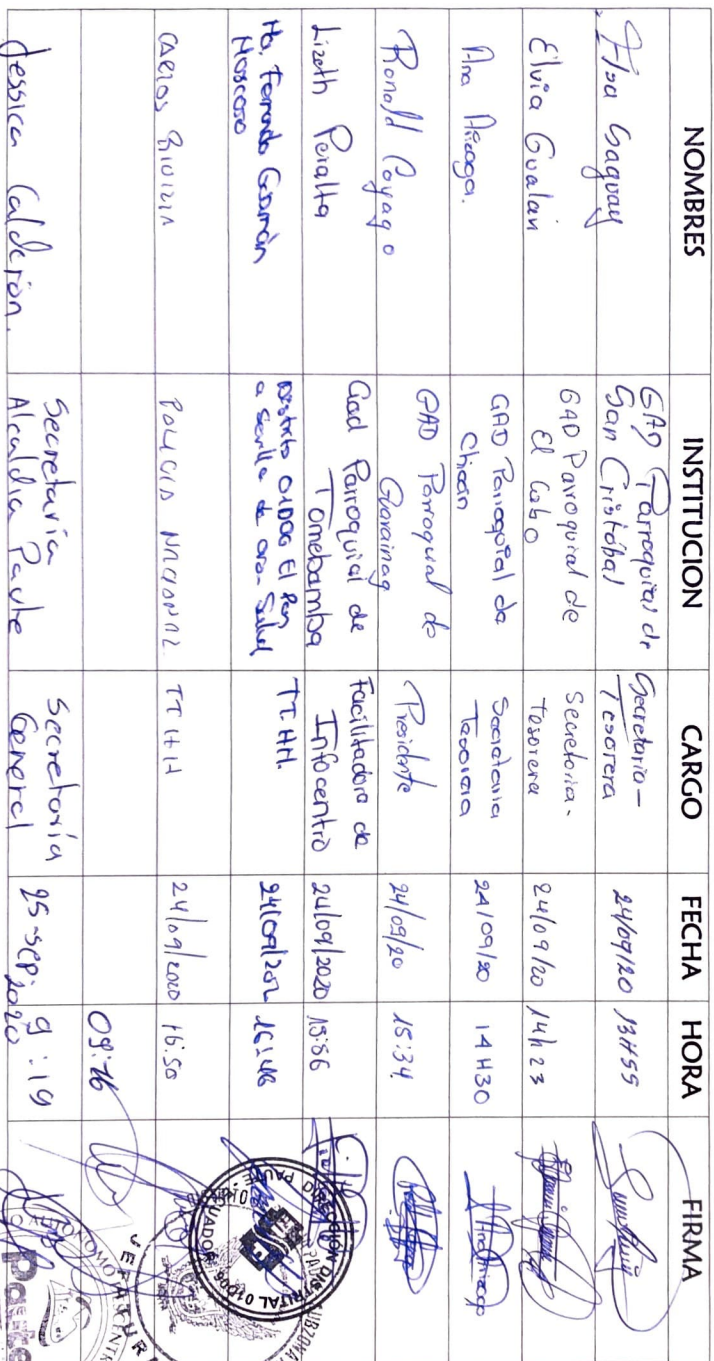 NOMBRES INSTITUCION CARGO FECHA HORA FIRMA
Elsa Saguay GAD Parroquial de San Cristóbal Secretaria-Tesorera 24/09/20 13H55
Elvia Gualan GAD Parroquial de El Cabo Secretaria-Tesorera 24/09/20 14h23
Ana Arizaga. GAD Parroquial de Chicán Secretaria Tesorera 24/09/20 14H30
Ronald Coyago GAD Parroquial de Guarainag Presidente 24/09/20 15:34
Lizeth Peralta Gad Parroquial de Tomebamba Facilitadora de Infocentro 24/09/2020
Ma. Fernanda Guzmán Moscoso Distrito 01D06 El Pan a Sevilla de Oro-Salud TT.HH. 16:46
Carlos POLICIA NACIONAL TT HH 24/09/2020 16:50
09:16
Jessica Calderón. Secretaría Alcaldía Paute Secretaría General 25-sep-2020 9:19
DIRECCIÓN DISTRITAL 01D06
ECUADOR
JEFATURA
Paute